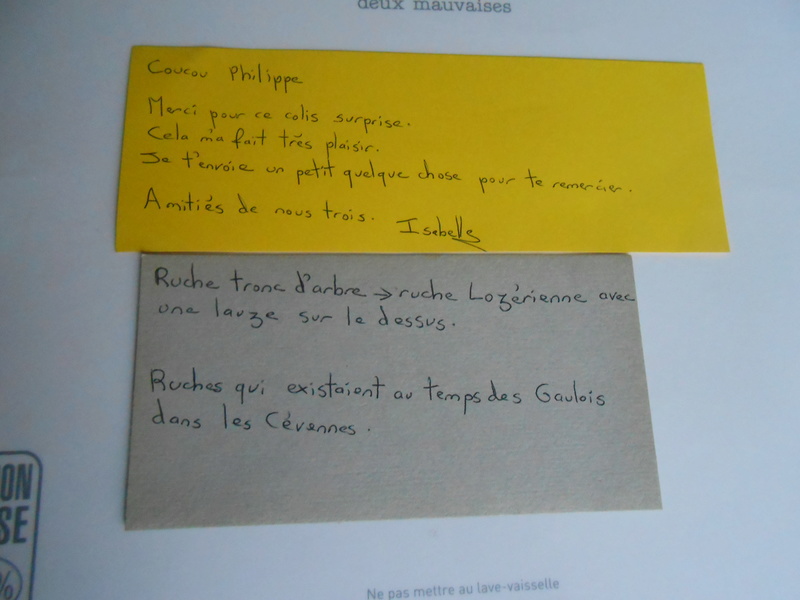 deux mauvaises
Coucou Philippe
Merci pour ce colis surprise.
Cela m'a fait très plaisir.
Je t'envoie un petit quelque chose pour te remercier.
Amitiés de nous trois.
Isabelle
Ruche tronc d'arbre → ruche Lozérienne avec
une lauze sur le dessus.
Ruches qui existaient au temps des Gaulois
dans les Cévennes.
ON
SE
%
Ne pas mettre au lave-vaisselle